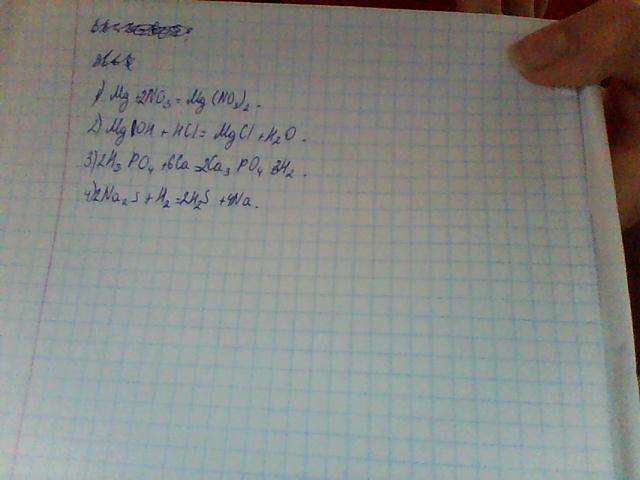 1) Mg + 2NO₃ = Mg(NO₃)₂.
2) MgOH + HCl = MgCl + H₂O.
3) 2H₃PO₄ + 6Ca = 2Ca₃PO₄ 3H₂.
4) 2Na₂S + H₂ = 2H₂S + 4Na.